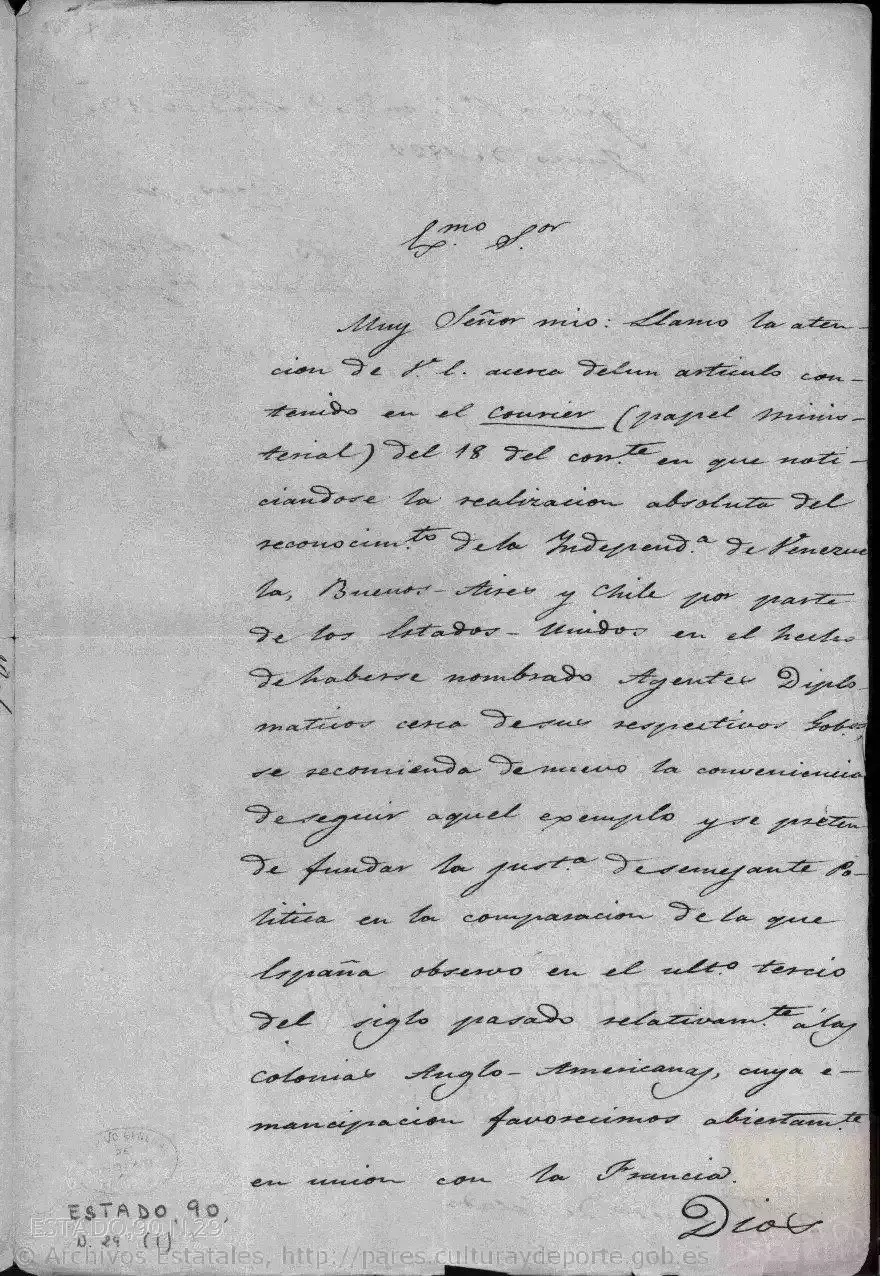 Exmo. Sor.
Muy Señor mio: Llamo la aten-
cion de V. E. acerca de un articulo con-
tenido en el Courier (papel minis-
terial) del 18 del corrte. en que noti-
ciandose la realizacion absoluta del
reconocimto. de la Independa. de Venezue
la, Buenos-Aires y Chile por parte
de los Estados-Unidos en el hecho
de haberse nombrado Agentes Diplo-
maticos cerca de sus respectivos Gobos.
se recomienda de nuevo la conveniencia
de seguir aquel exemplo y se preten
de fundar la justa. de semejante Po-
litica en la comparacion de la que
España observó en el ulto. tercio
del siglo pasado relativamte. á las
Colonias Anglo-Americanas, cuya e-
mancipacion favorecimos abiertamte.
en union con la Francia.
Dios
ESTADO, 90,
D. 29 (1)
ESTADO,90,N.29
© Archivos Estatales, http://pares.culturaydeporte.gob.es